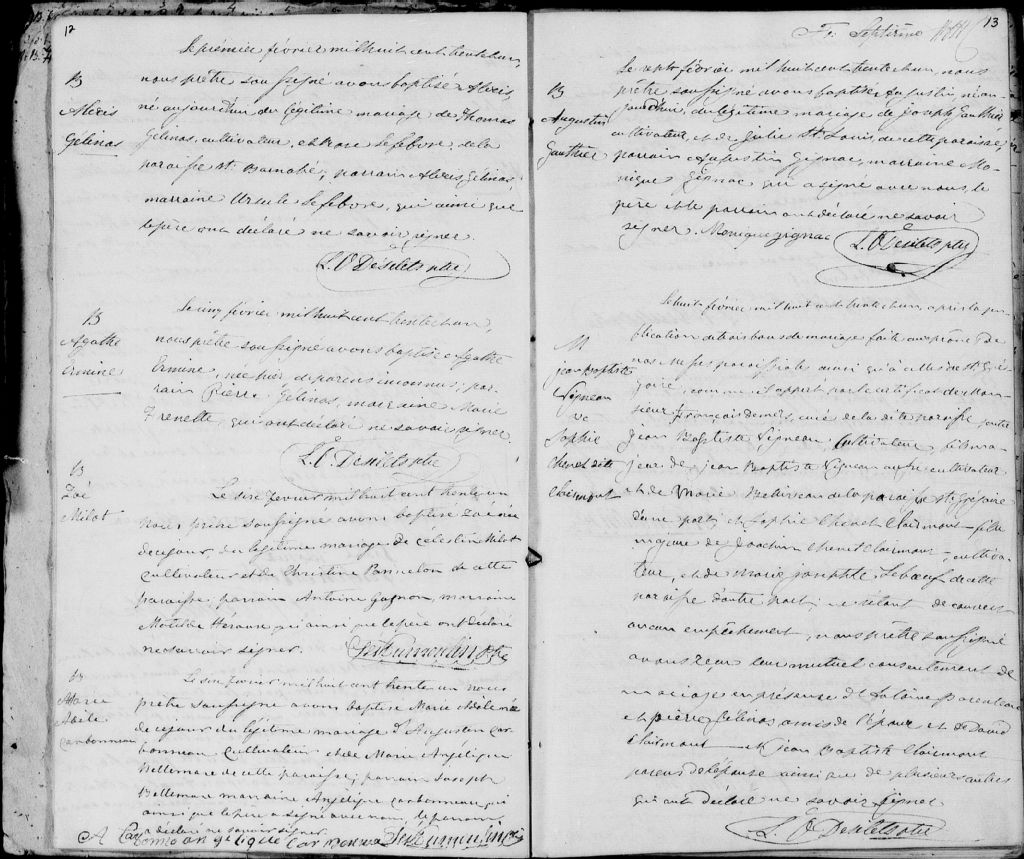 12
Le premier février mil huit cent trente et un,
B
nous prêtre soussigné avons baptisé Alexis,
Alexis
né aujourd'hui du légitime mariage de Thomas
Gélinas
Gélinas, cultivateur, et de Rose Lefebvre, de la
paroisse St. Barnabé; parrain Alexis Gélinas,
marraine Ursule Lefebvre, qui ainsi que
le père ont déclaré ne savoir signer.
L. O Désilets ptre
Le cinq février mil huit cent trente et un,
B
nous prêtre soussigné avons baptisé Agathe
Agathe
Ermine
Ermine, née hier, de parens inconnus; par-
rain Pierre Gélinas, marraine Marie
Frenette, qui ont déclaré ne savoir signer.
L. O. Desilets ptre
B
Zoé
Milot
Le six fevrier mil huit cent trente un
Nous prêtre soussigné avons baptisé Zoé née
de ce jour, du légitime mariage de Célestin Milot
Cultivateur et de Christine Panneton de cette
paroisse, parrain Antoine Gagnon, marraine
Matilde Heroux qui ainsi que le père ont déclaré
ne savoir signer.
B
Marie
Adele
Carbonneau
Le six fevrier mil huit cent trente un nous
prêtre soussigné avons baptisé Marie née
de ce jour du légitime mariage d'Augustin Car
bonneau Cultivateur et de Marie Angélique
Bellemare de cette paroisse; parrain Joseph
Bellemare marraine Angélique Carbonneau qui
ainsi que le père a signé avec nous, le parrain
a déclaré ne savoir signer.
13
F. Septième
Le sept février mil huit cent trente et un, nous
B
prêtre soussigné avons baptisé Augustin né au-
Augustin
jourd'hui, du légitime mariage de Joseph Gauthier
Gauthier
cultivateur, et de Julie St. Louis, de cette paroisse,
parrain Augustin Gignac, marraine Mo-
nique Gignac qui a signé avec nous, le
père et le parrain ont déclaré ne savoir
signer. Monique gignac
L. O Desilets ptre
Le huit février mil huit cent trente et un, après la pu-
blication de trois bans de mariage faite au prône de
M
nos Messes paroissiales ainsi qu'à celles de St. Gré-
jean Baptiste
goire, comme il appert par le certificat de Mon-
Vigneau
sieur François Demers, curé de la dite paroisse, entre
&c
Jean Baptiste Vigneau, Cultivateur, fils ma-
Sophie
Chenet dite
jeur de jean Baptiste Vigneau aussi cultivateur
Clairmont
et de Marie de la paroisse St. Grégoire
d'une part; et Sophie Chenet Clairmont fille
majeure de Joachim Chenet Clairmont, cultiva-
teur, et de Marie josephte Leboeuf de cette
paroisse d'autre part; ne s'étant découvert
aucun empêchement, nous prêtre soussigné
avons reçu leur mutuel consentement de
mariage en présence d'Antoine Parenteau
et pierre Gélinas amis de l'époux et de David
Clairmont et jean Baptiste Clairmont
parens de l'épouse ainsi que de plusieurs autres
qui ont déclaré ne savoir signer
L. O Desilets ptre